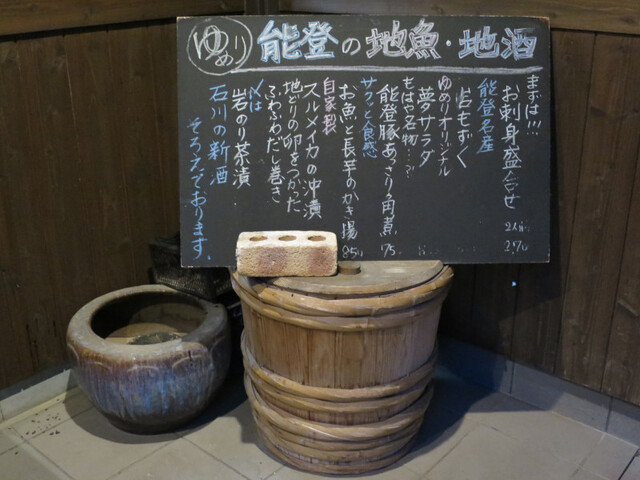 ゆめり
能登の地魚・地酒
まずは!!!
お刺身盛合せ 2人前
能登名産
岩もずく
ゆめりオリジナル
夢サラダ
もはや名物…?
能登豚あっさり角煮
サクッと食感
お魚と長芋のかき揚 850
自家製
スルメイカの沖漬
地どりの卵をつかった
ふわふわだし巻き
〆は
岩のり茶漬
石川の新酒
そろえております。